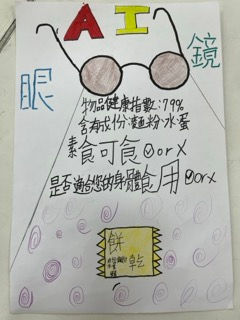 AI
眼鏡
物品健康指數:79%
含有成份:麵粉.水蛋
素食可食Oorx
是否適合您的身體食用Oorx
餅乾